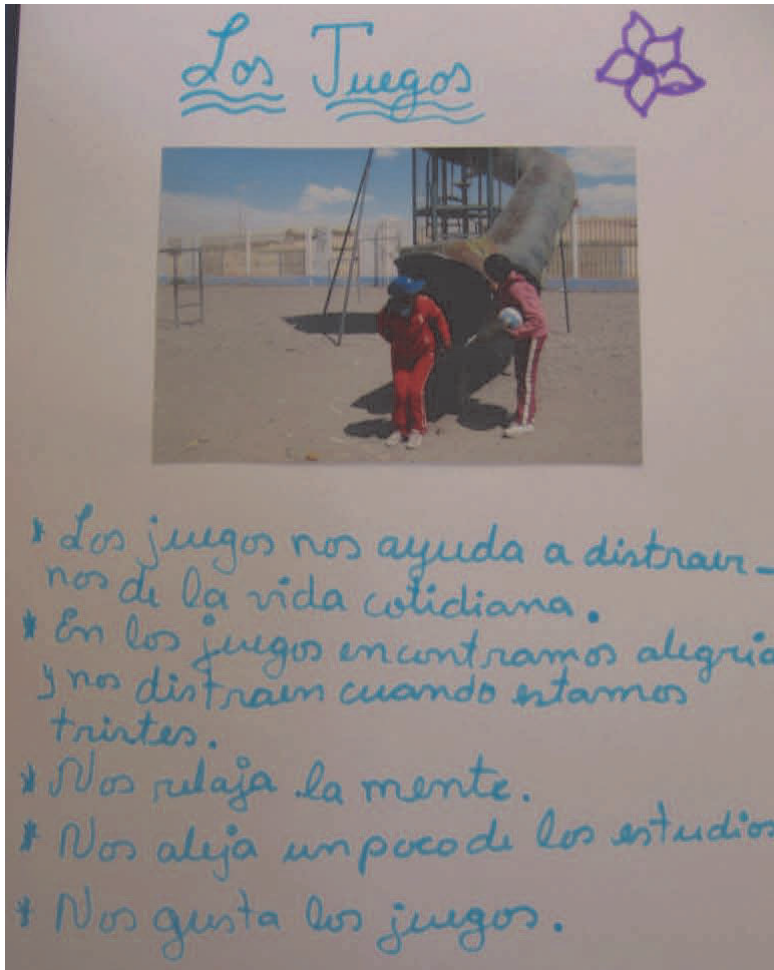 Los Juegos
* Los juegos nos ayuda a distraer-
nos de la vida cotidiana.
* En los juegos encontramos alegria
y nos distraen cuando estamos
tristes.
* Nos relaja la mente.
* Nos aleja un poco de los estudios
* Nos gusta los juegos.